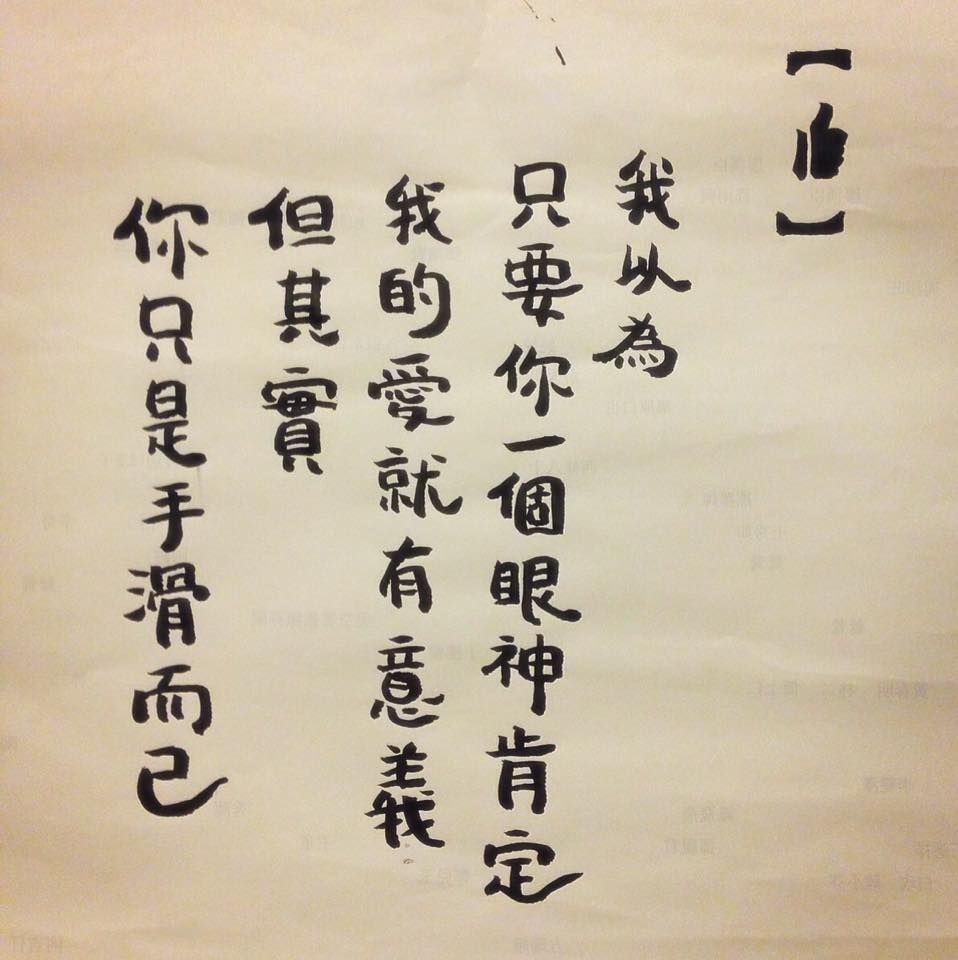 【👍】
我以為
只要你一個眼神肯定
我的愛就有意義
但其實
你只是手滑而已